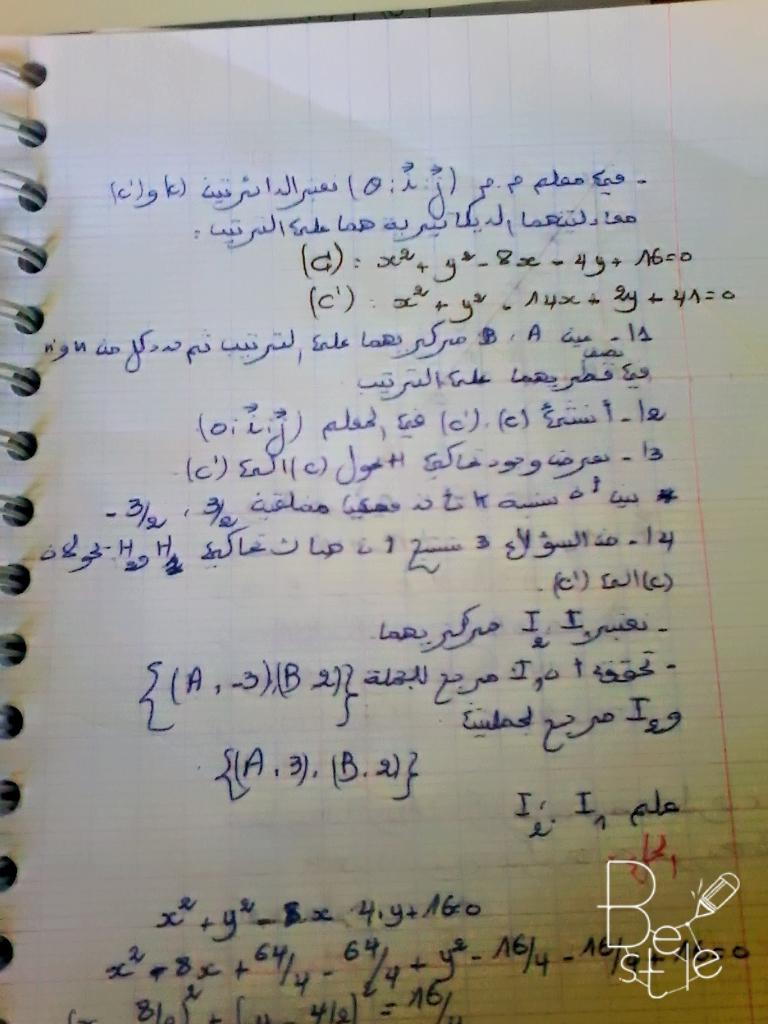 - في معلم م.م (O; i; j) نعتبر الدائرتين (C) و (C')
معادلتيهما الديكارتية هما على الترتيب:
(C): x² + y² - 8x - 4y + 16 = 0
(C'): x² + y² - 14x + 2y + 41 = 0
1/- عين A، B مركزيهما على الترتيب ثم حدد كل من
نصف
قطريهما على الترتيب
2/- أنشئ (C)، (C') في المعلم (O; i; j)
3/- نفرض وجود تحاكي H تحول (C) الى (C')
بين أن نسبة 3/2، -3/2
4/- من السؤال 3 نستنتج أن هناك تحاكي H₁ و H₂ تحولان
(C) الى (C')
- نعتبر I₁ I₂ مركزيهما
- تحقق أن I₁ مرجح للجملة {(A, -3), (B 2)}
و I₂ مرجح لجملتين
{(A, 3), (B, 2)}
علم I₁، I₂
x² + y² - 8x 4y + 16 = 0
x² - 8x + 64/4 - 64/4 + y² - 16/4 - 16/4 + 16 = 0
Be
style